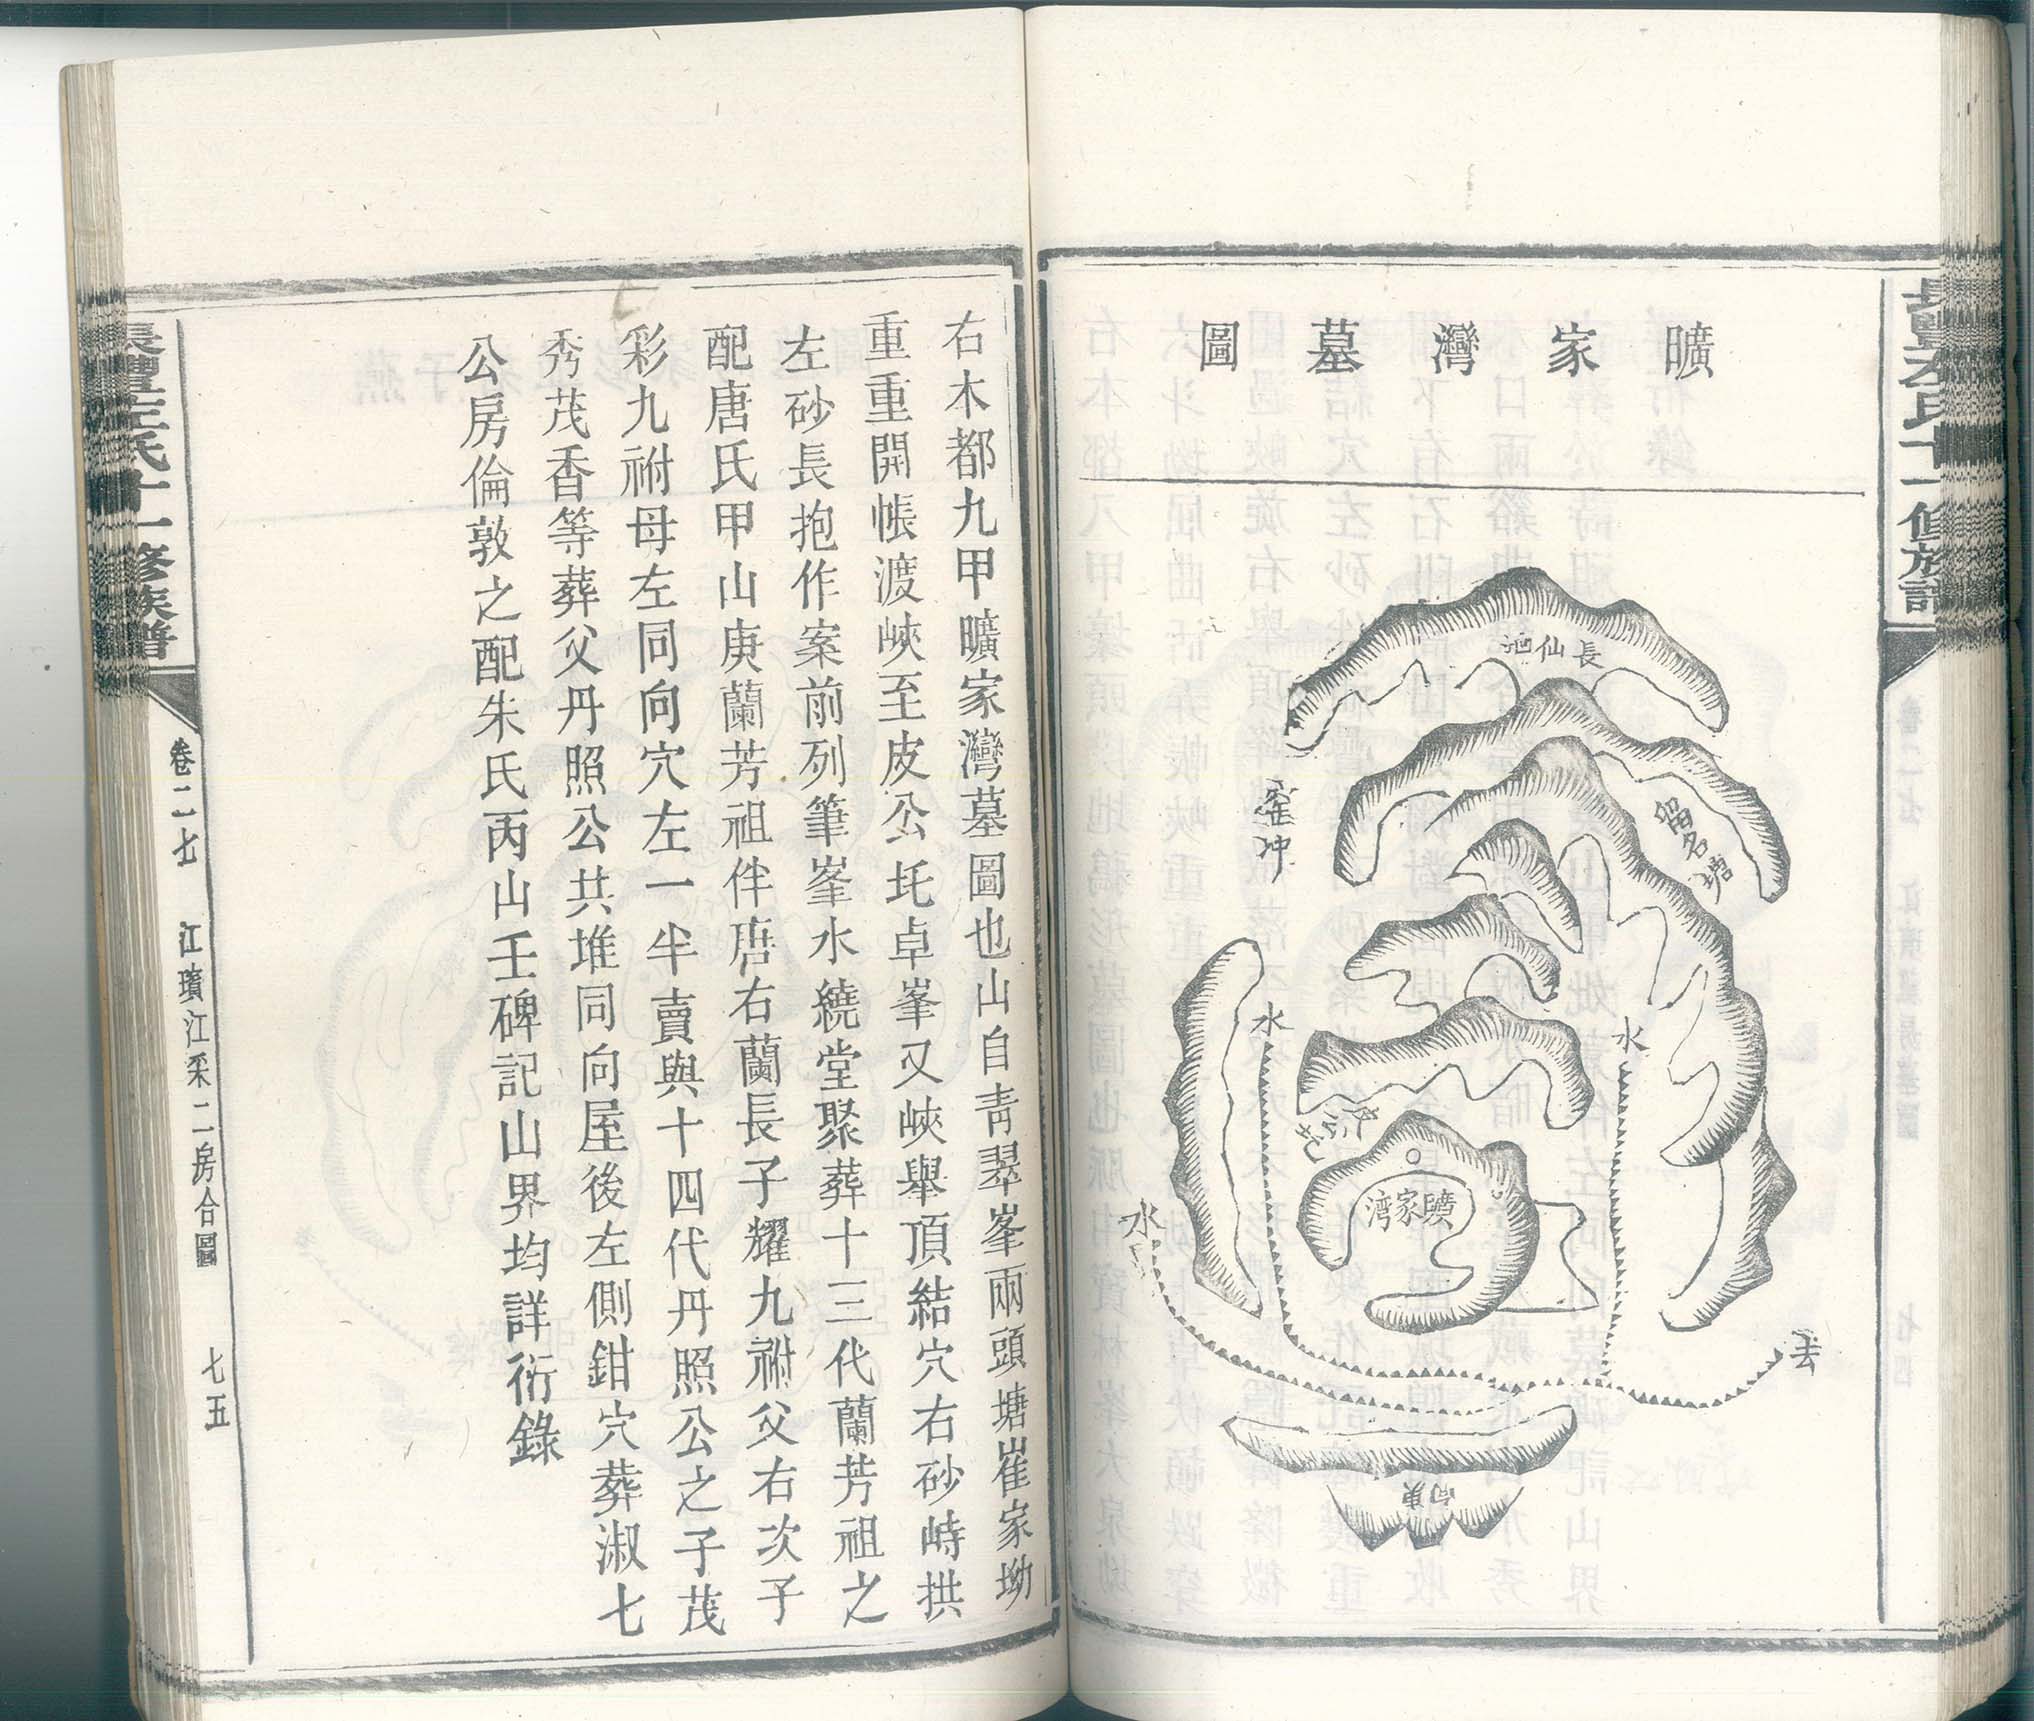 曠家灣墓圖
長仙池
留名塘
窰冲
水
水
皮公圫
曠家湾
水
去
庚向
右木都九甲曠家灣墓圖也山自青翠峯兩頭塘崔家坳
重重開帳渡峽至皮公圫卓峯又峽舉頂結穴右砂峙拱
左砂長抱作案前列筆峯水繞堂聚葬十三代蘭芳祖之
配唐氏甲山庚蘭芳祖伴唐右蘭長子耀九祔父右次子
彩九祔母左同向穴左一半賣與十四代丹照公之子茂
秀茂香等葬父丹照公共堆同向屋後左側鉗穴葬淑七
公房倫敦之配朱氏丙山壬碑記山界均詳衍錄
長豐左氏十一修族譜
卷二七
江璜江采二房合圖
七五